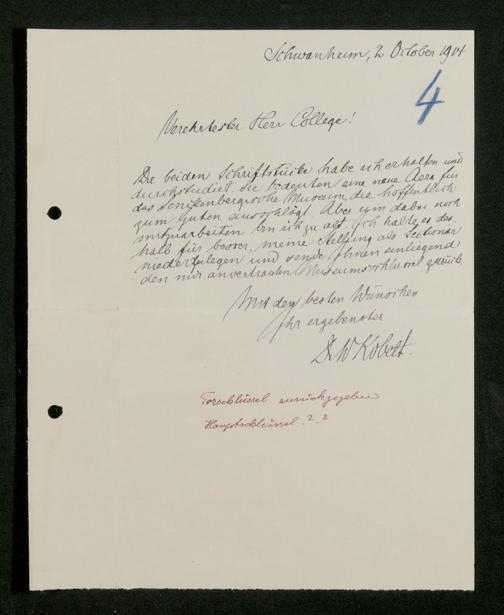 Schwanheim, 2 October 1914
4
Verehrtester Herr College!
Die beiden Schriftstücke habe ich erhalten und
durchstudiert. Sie bedeuten eine neue Aera für
das Senckenbergische Museum, die hoffentlich
zum Guten ausschlägt. Aber um dabei noch
mitzuarbeiten bin ich zu alt. Ich halte es des
halb für besser, meine Stellung als Sectionär
niederzulegen und sende Ihnen einliegend
den mir anvertrauten Museumsschlüssel zurück
Mit den besten Wünschen
Ihr ergebenster
Dr W Kobelt.
Torschlüssel zurückgegeben
Hauptschlüssel ? ?